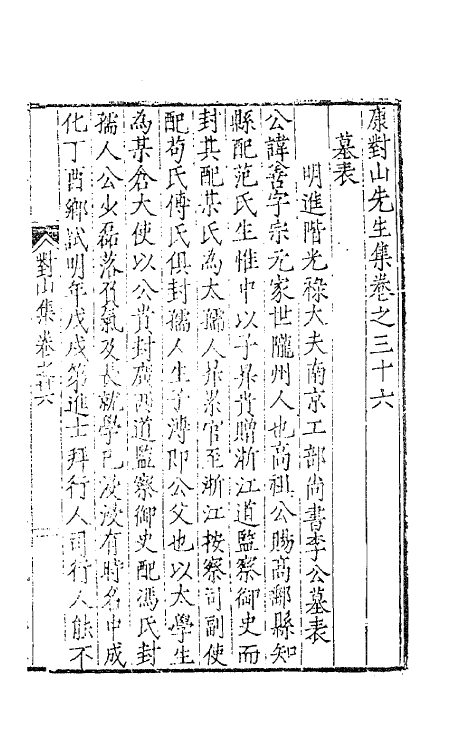 康對山先生集卷之三十六
墓表
明進階光祿大夫南京工部尚書李公墓表
公諱善字宗元家世隴州人也高祖公賜高郵縣知
縣配范氏生惟中以子鼎貴贈浙江道監察御史而
封其配某氏為太孺人鼎累官至浙江按察司副使
配苟氏傅氏俱封孺人生子溥即公父也以太學生
為某倉大使以公貴封廣西道監察御史配馮氏封
孺人公少磊落負氣及長就學已汲汲有時名中成
化丁酉鄉試明年戊戌第進士拜行人司行人能不
對山集卷之三十六